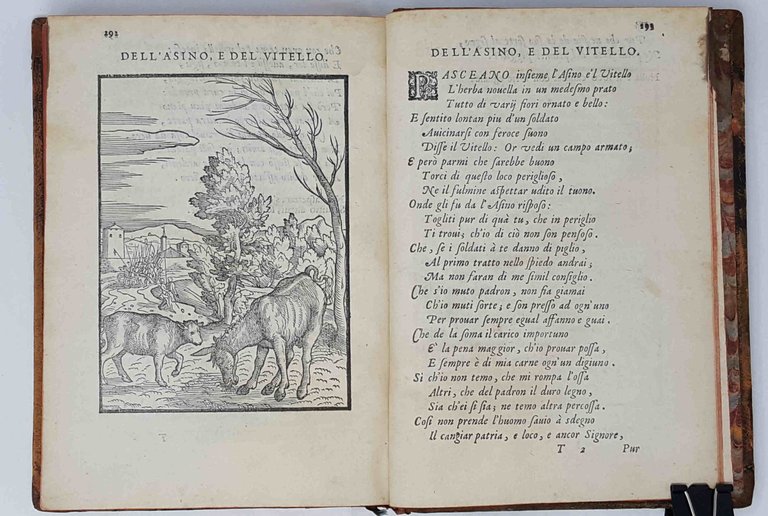 292
DELL'ASINO, E DEL VITELLO.
293
DELL'ASINO, E DEL VITELLO.
PASCEANO insieme l'Asino e'l Vitello
L'herba nouella in un medesmo prato
Tutto di varij fiori ornato e bello:
E sentito lontan piu d'un soldato
Auicinarsi con feroce suono
Disse il Vitello: Or vedi un campo armato;
E però parmi che sarebbe buono
Torci di questo loco periglioso,
Ne il fulmine aspettar udito il tuono.
Onde gli fu da l'Asino risposo:
Togliti pur di quà tu, che in periglio
Ti troui; ch'io di ciò non son pensoso.
Che, se i soldati à te danno di piglio,
Al primo tratto nello spiedo andrai;
Ma non faran di me simil consiglio.
Che s'io muto padron, non fia giamai
Ch'io muti sorte; e son presso ad ogn'uno
Per prouar sempre egual affanno e guai.
Che de la soma il carico importuno
E' la pena maggior, ch'io prouar possa,
E sempre è di mia carne ogn'un digiuno.
Si ch'io non temo, che mi rompa l'ossa
Altri, che del padron il duro legno,
Sia ch'ei si sia; ne temo altra percossa.
Così non prende l'huomo sauio à sdegno
Il cangiar patria, e loco, e ancor Signore,
T 2 Pur